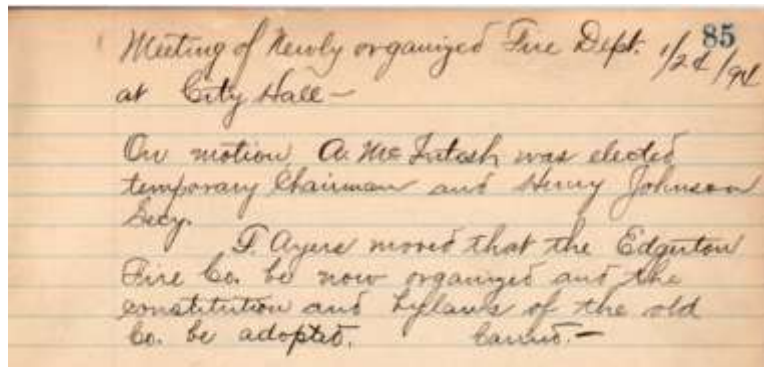 85
Meeting of Newly organized Fire Dept. 1/24/94
at City Hall —
On motion A. McIntosh was elected
temporary Chairman and Henry Johnson
Secy.
F. Ayers moved that the Edgerton
Fire Co. be now organized and the
constitution and bylaws of the old
Co. be adopted. Carried. —